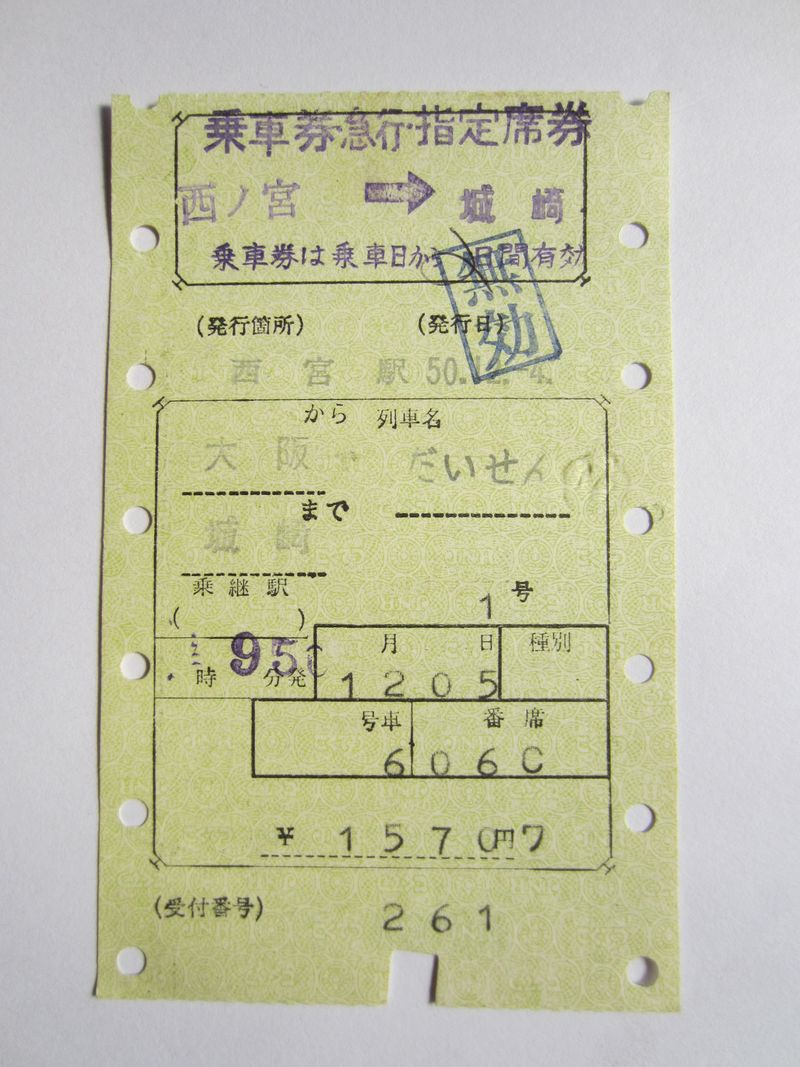 乗車券・急行・指定席券
西ノ宮 ➡ 城崎
乗車券は乗車日から 日間有効
無効
(発行箇所) (発行日)
西宮駅 50.12.-4.
から 列車名
大阪 だいせん
まで
城崎
乗継駅
( )
1号
月 日 種別
950
時 分発 1205
号車 番 席
6 06C
¥ 1570円ワ
(受付番号)
261